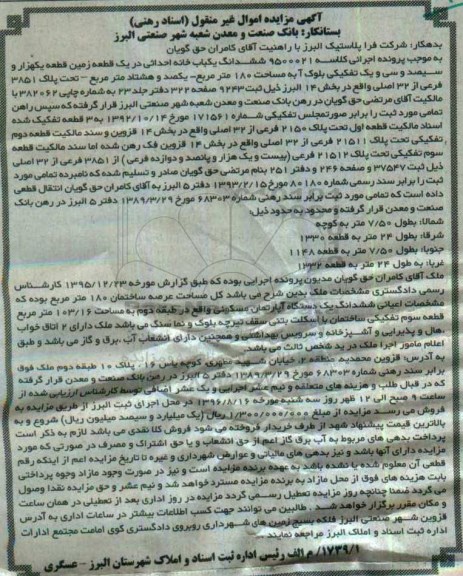 آگهی مزایده اموال غیر منقول (اسناد رهنی)
بستانکار: بانک صنعت و معدن شعبه شهر صنعتی البرز
بدهکار: شرکت فرا پلاستیک البرز با راهنیت آقای کامران حق گویان
به موجب پرونده اجرائی کلاسه 9500021 ششدانگ یکباب خانه احداثی در یک قطعه زمین قطعه یکهزار و
سیصد و سی و یک تفکیکی بلوک آ به مساحت 180 متر مربع- یکصد و هشتاد متر مربع – تحت پلاک 3851
فرعی از 32 اصلی واقع در بخش 14 البرز ذیل ثبت 9243 صفحه 322 دفتر جلد 23 به شماره چاپی 382062 با
مالکیت آقای مرتضی حق گویان در رهن بانک صنعت و معدن شعبه شهر صنعتی البرز قرار گرفته که سپس راهن
تمامی مورد ثبت را برابر صورتمجلس تفکیکی شماره 171561 مورخ 1392/10/14 به 3 قطعه تفکیک شده
اسناد مالکیت قطعه اول تحت پلاک 2150 فرعی از 32 اصلی واقع در بخش 14 قزوین و سند مالکیت قطعه دوم
تفکیکی تحت پلاک 21511 فرعی از 32 اصلی واقع در بخش 14 قزوین فک رهن شده اما سند مالکیت قطعه
سوم تفکیکی تحت پلاک 21512 فرعی (بیست و یک هزار و پانصد و دوازده فرعی ) از 3851 فرعی از 32 اصلی
ذیل ثبت 37547 صفحه 246 و دفتر 251 بنام مرتضی حق گویان صادر و تسلیم شده که نامبرده تمامی مورد
ثبت را برابر سند رسمی شماره 80180 مورخ 1393/2/15 دفتر 5 البرز به آقای کامران حق گویان انتقال قطعی
داده است که تمامی مورد ثبت برابر سند رهنی شماره 68303 مورخ 1389/3/29 دفتر 5 البرز در رهن بانک
صنعت و معدن قرار گرفته و محدود به حدود ذیل:
شمالا: بطول 7/50 متر به کوچه
شرقا: بطول 24 متر به قطعه 1330
جنوبا: بطول 7/50 متر به قطعه 1148
غربا: به طول 24 متر به قطعه 1332
ملک آقای کامران حق گویان مدیون پرونده اجرایی بوده که طبق گزارش مورخه 1395/12/23 کارشناس
رسمی دادگستری مشخصات ملک بدین شرح می باشد کل مساحت عرصه ساختمان 180 متر مربع بوده که
مشخصات اعیانی ششدانگ یک دستگاه آپارتمان مسکونی واقع در طبقه دوم به مساحت 103/16 متر مربع
قطعه سوم تفکیکی ساختمان با اسکلت بتنی سقف تیرچه بلوک و نما سنگ می باشد ملک دارای 2 اتاق خواب
،هال و پذیرایی و آشپزخانه و سرویس بهداشتی و همچنین دارای انشعاب آب ،برق و گاز می باشد و طبق
اعلام مامور اجرا ملک در ید شخص ثالث می باشد.
به آدرس: قزوین محمدیه منطقه 2 خیابان شهید منتوری کوچه یاس 16 . پلاک 10 طبقه دوم ملک فوق
برابر سند رهنی شماره 68303 مورخ 1389/3/29 دفتر 5 البرز در رهن بانک صنعت و معدن قرار گرفته
که در قبال طلب و هزینه های متعلقه و نیم عشر اجرایی و یک عشر اضافی توسط کارشناس ارزیابی شده از
ساعت 9 صبح الی 12 ظهر روز سه شنبه مورخه 1396/8/16 در محل اجرای ثبت البرز از طریق مزایده به
فروش می رسد مزایده از مبلغ 1/300/000/000 ریال (یک میلیارد و سیصد میلیون ریال) شروع و به
بالاترین قیمت پیشنهاد شهد از طرف خریدار فروخته می شود فروش کلا نقدی می باشد لازم به ذکر است
پرداخت بدهی های مربوط به آب برق گاز اعم از حق انشعاب و یا حق اشتراک و مصرف در صورتی که مورد
مزایده دارای آنها باشد و نیز بدهی های مالیاتی و عوارض شهرداری و غیره تا تاریخ مزایده اعم از اینکه رقم
قطعی آن معلوم شده یا نشده باشد به عهده برنده مزایده است و نیز در صورت وجود مازاد وجوه پرداختی
بابت هزینه های فوق از محل مازاد به برنده مزایده مسترد خواهد شد و نیم عشر و حق مزایده نقدا وصول
می گردد ضمنا چنانچه روز مزایده تعطیل رسمی گردد مزایده در روز اداری بعد از تعطیلی در همان ساعت
و مکان مقرر برگزار خواهد شد . طالبین می توانند جهت کسب اطلاعات بیشتر در ساعات اداری به آدرس
قزوین شهر صنعتی البرز فلکه بسیج زمین های شهرداری روبروی دادگستری کوی امامت مجتمع ادارات
اداره ثبت اسناد و املاک البرز مراجعه نمایند
1739/1/ م الف رئیس اداره ثبت اسناد و املاک شهرستان البرز - عسگری